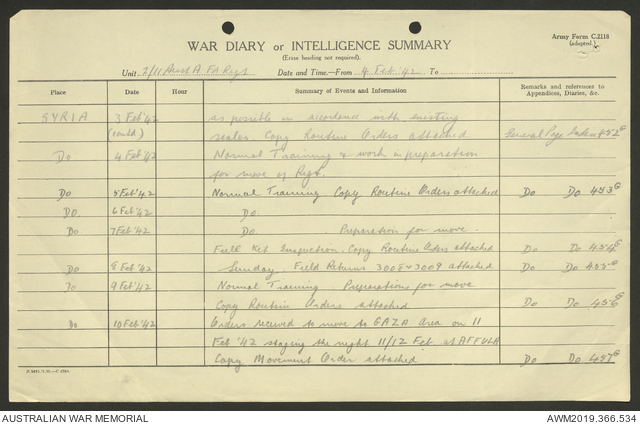 Army Form C.2118
(adapted.)
WAR DIARY or INTELLIGENCE SUMMARY
(Erase heading not required).
Unit 2/11 Aust A Fd. Regt Date and Time—From 4 Feb '42 To
Place Date Hour Summary of Events and Information Remarks and references to Appendices, Diaries, &c.
SYRIA 3 Feb '42 as posible in accordence with existing
(contd.) scales. Copy Routine Orders attached General Page Index 452G
Do 4 Feb '42 Normal Training & work in preparation
for move of Regt.
Do 5 Feb '42 Normal Training Copy Routine Orders attached Do Do 453G
Do 6 Feb '42 Do.
Do 7 Feb '42 Do. Preparation for move.
Full Kit Inspection. Copy Routine Orders attached Do Do 454G
Do 8 Feb '42 Sunday. Field Returns 3008 & 3009 attached Do Do 455G
Do 9 Feb '42 Normal Training Preparations for move
Copy Routine Orders attached Do Do 456G
Do 10 Feb '42 Orders received to move to GAZA Area on 11
Feb '42 staging the night 11/12 Feb at AFFULA
Copy Movement Order attached Do Do 457G
AUSTRALIAN WAR MEMORIAL AWM2019.366.534